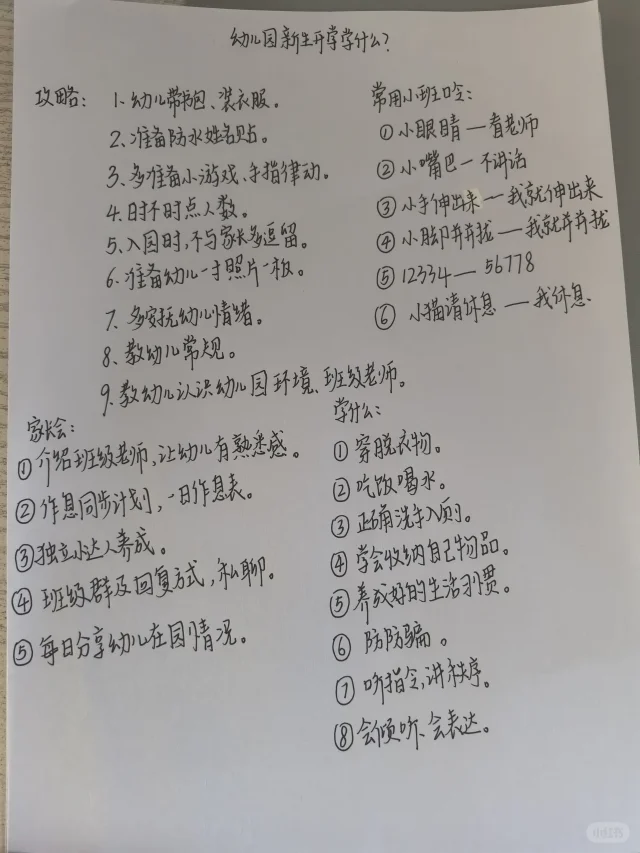 幼儿园新生开学学什么?
攻略:
1. 幼儿带书包、装衣服。
2. 准备防水姓名贴。
3. 多准备小游戏、手指律动。
4. 时不时点人数。
5. 入园时,不与家长多逗留。
6. 准备幼儿一寸照片一板。
7. 多安抚幼儿情绪。
8. 教幼儿常规。
9. 教幼儿认识幼儿园环境、班级老师。
常用小班口令:
① 小眼睛 — 看老师
② 小嘴巴 — 不讲话
③ 小手伸出来 — 我就伸出来
④ 小脚并并拢 — 我就并并拢
⑤ 12334 — 56778
⑥ 小猫请休息 — 我休息
家长会:
① 介绍班级老师,让幼儿有熟悉感。
② 作息同步计划,一日作息表。
③ 独立小达人养成。
④ 班级群及回复方式,私聊。
⑤ 每日分享幼儿在园情况。
学什么:
① 穿脱衣物。
② 吃饭喝水。
③ 正确洗手入厕。
④ 学会收纳自己物品。
⑤ 养成好的生活习惯。
⑥ 防防骗。
⑦ 听指令,讲秩序。
⑧ 会倾听、会表达。
小红书